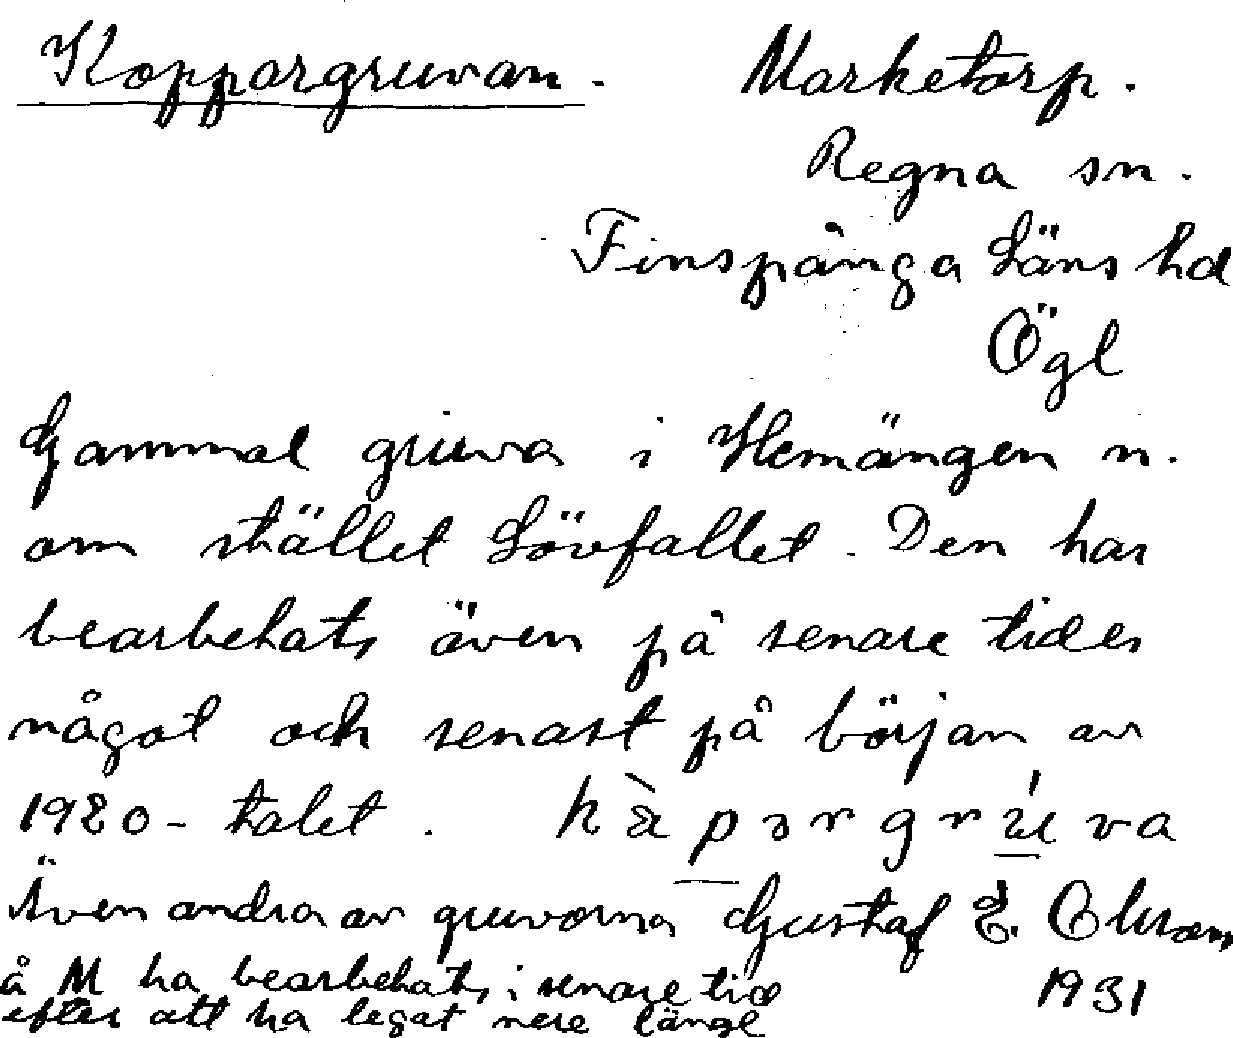 Koppargruvan. Marketorp.
Regna sn.
Finspånga Läns hd
Ögl
Gammal gruva i Hemängen n.
om stället Lövfallet. Den har
bearbetats även på senare tider
något och senast på början av
1920-talet. kàpərgrúva
Även andra av gruvorna Gustaf E.
å M ha bearbetats i senare tid 1931
efter att ha legat nere länge